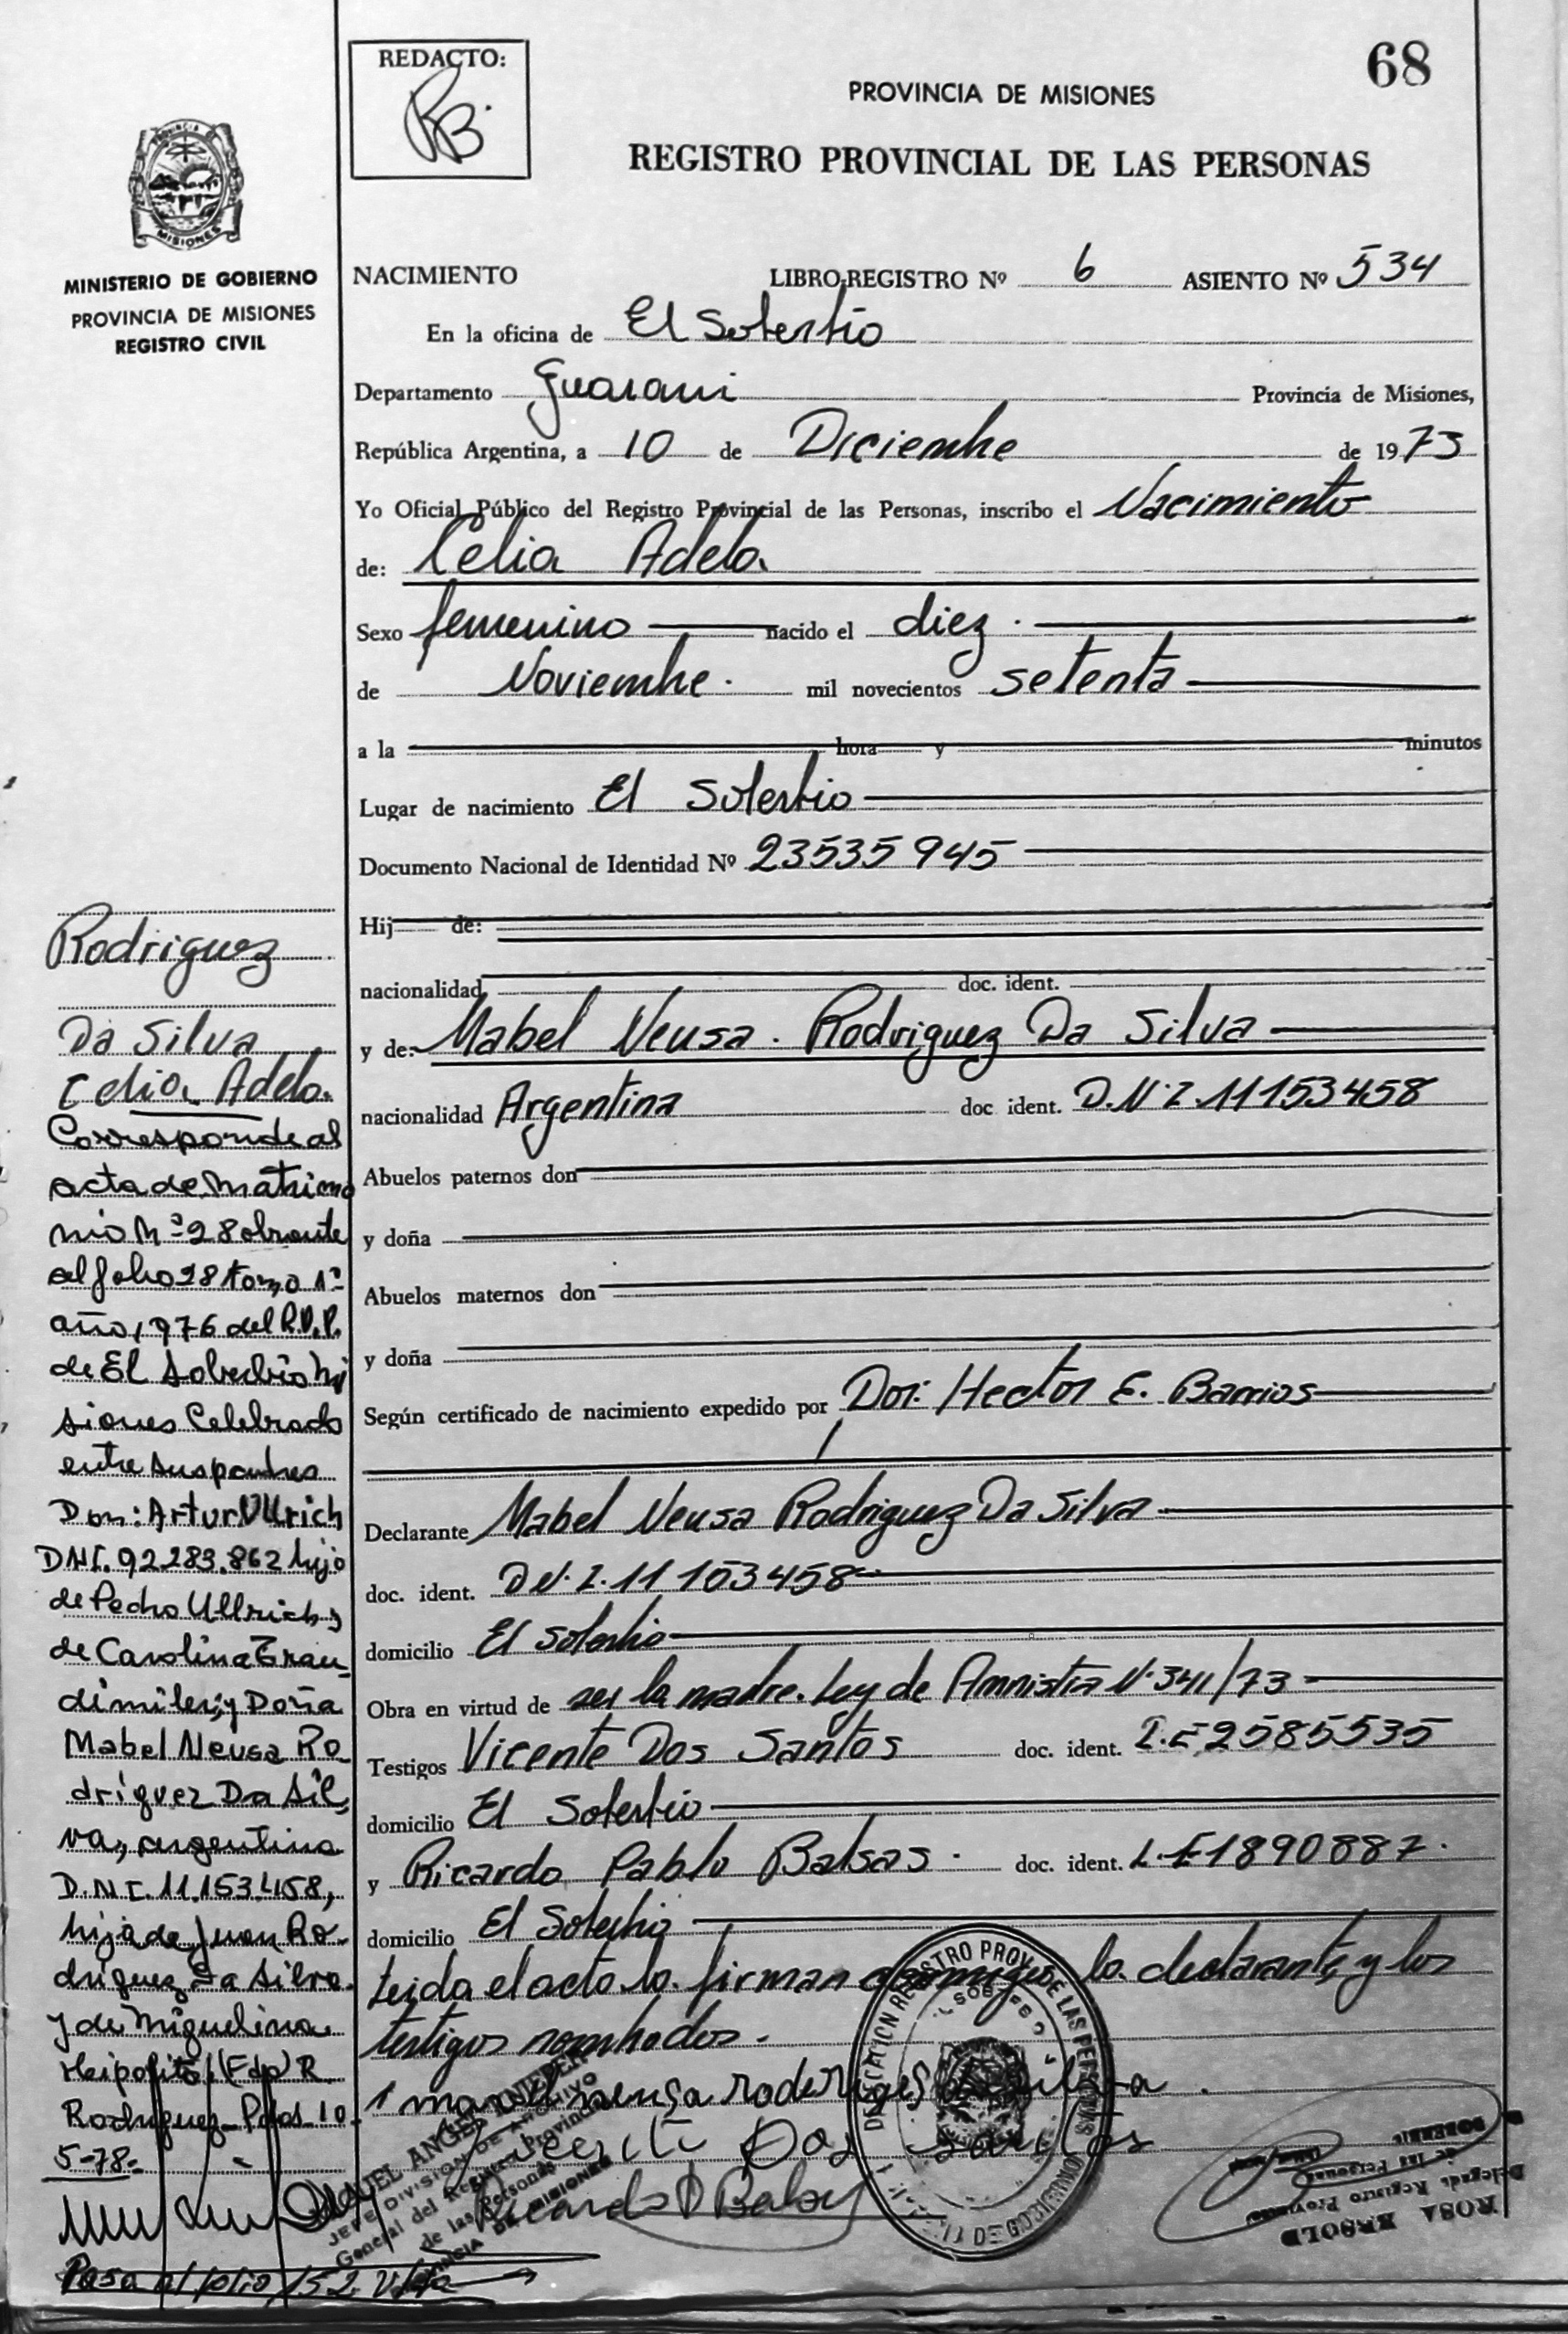 68
REDACTO:
RB.
PROVINCIA DE MISIONES
REGISTRO PROVINCIAL DE LAS PERSONAS
PROVINCIA DE
MISIONES
MINISTERIO DE GOBIERNO
PROVINCIA DE MISIONES
REGISTRO CIVIL
NACIMIENTO LIBRO-REGISTRO Nº 6 ASIENTO Nº 534
En la oficina de El Soberbio
Departamento Guarani Provincia de Misiones,
República Argentina, a 10 de Diciembre de 1973
Yo Oficial Público del Registro Provincial de las Personas, inscribo el Nacimiento
de: Celia Adela
Sexo femenino nacido el diez.
de Noviembre. mil novecientos setenta
a la hora y minutos
Lugar de nacimiento El Soberbio
Documento Nacional de Identidad Nº 23535945
Hij de:
nacionalidad doc. ident.
y de: Mabel Neusa. Rodriguez Da Silva
nacionalidad Argentina doc ident. D.N.I.11153458
Abuelos paternos don
y doña
Abuelos maternos don
y doña
Según certificado de nacimiento expedido por Dor: Hector E. Barrios
Declarante Mabel Neusa Rodriguez Da Silva
doc. ident. D.N.I.11153458
domicilio El Soberbio
Obra en virtud de ser la madre. Ley de Amnistia N.341/73
Testigos Vicente Dos Santos doc. ident. L.E2585535
domicilio El Soberbio
y Ricardo Pablo Balsas. doc. ident. L.E1890887.
domicilio El Soberbio
Leida el acta la firman conmigo, la declarante, y los
testigos nombrados.
Dos Santos
Rodriguez
Da Silva
Celia Adela.
Corresponde al
acta de matrimo
nio Nº 28 obrante
al folio 28 tomo 1º
año 1976 del R.P.P.
de El Soberbio Mi
siones Celebrado
entre sus padres
Don: Artur Ullrich
DNI. 92.283.862 hijo
de Pedro Ullrich y
de Carolina
y Doña
Mabel Neusa Ro
dríguez Da Sil
va, argentina
D.N.I. 11.153.458,
hija de Juan Ro-
driguez Da Silva
y de Miguelina
(Fdo) R.
Rodriguez Pdas 10-
5-78-
Pasa al folio 152 Vlta
JEFE DIVISION DE ARCHIVO
General del Registro Provincial
de las Personas
PROVINCIA DE MISIONES
ROSA ERSOLD
Delegada Registro Provincial
de las Personas
SOBERBIO